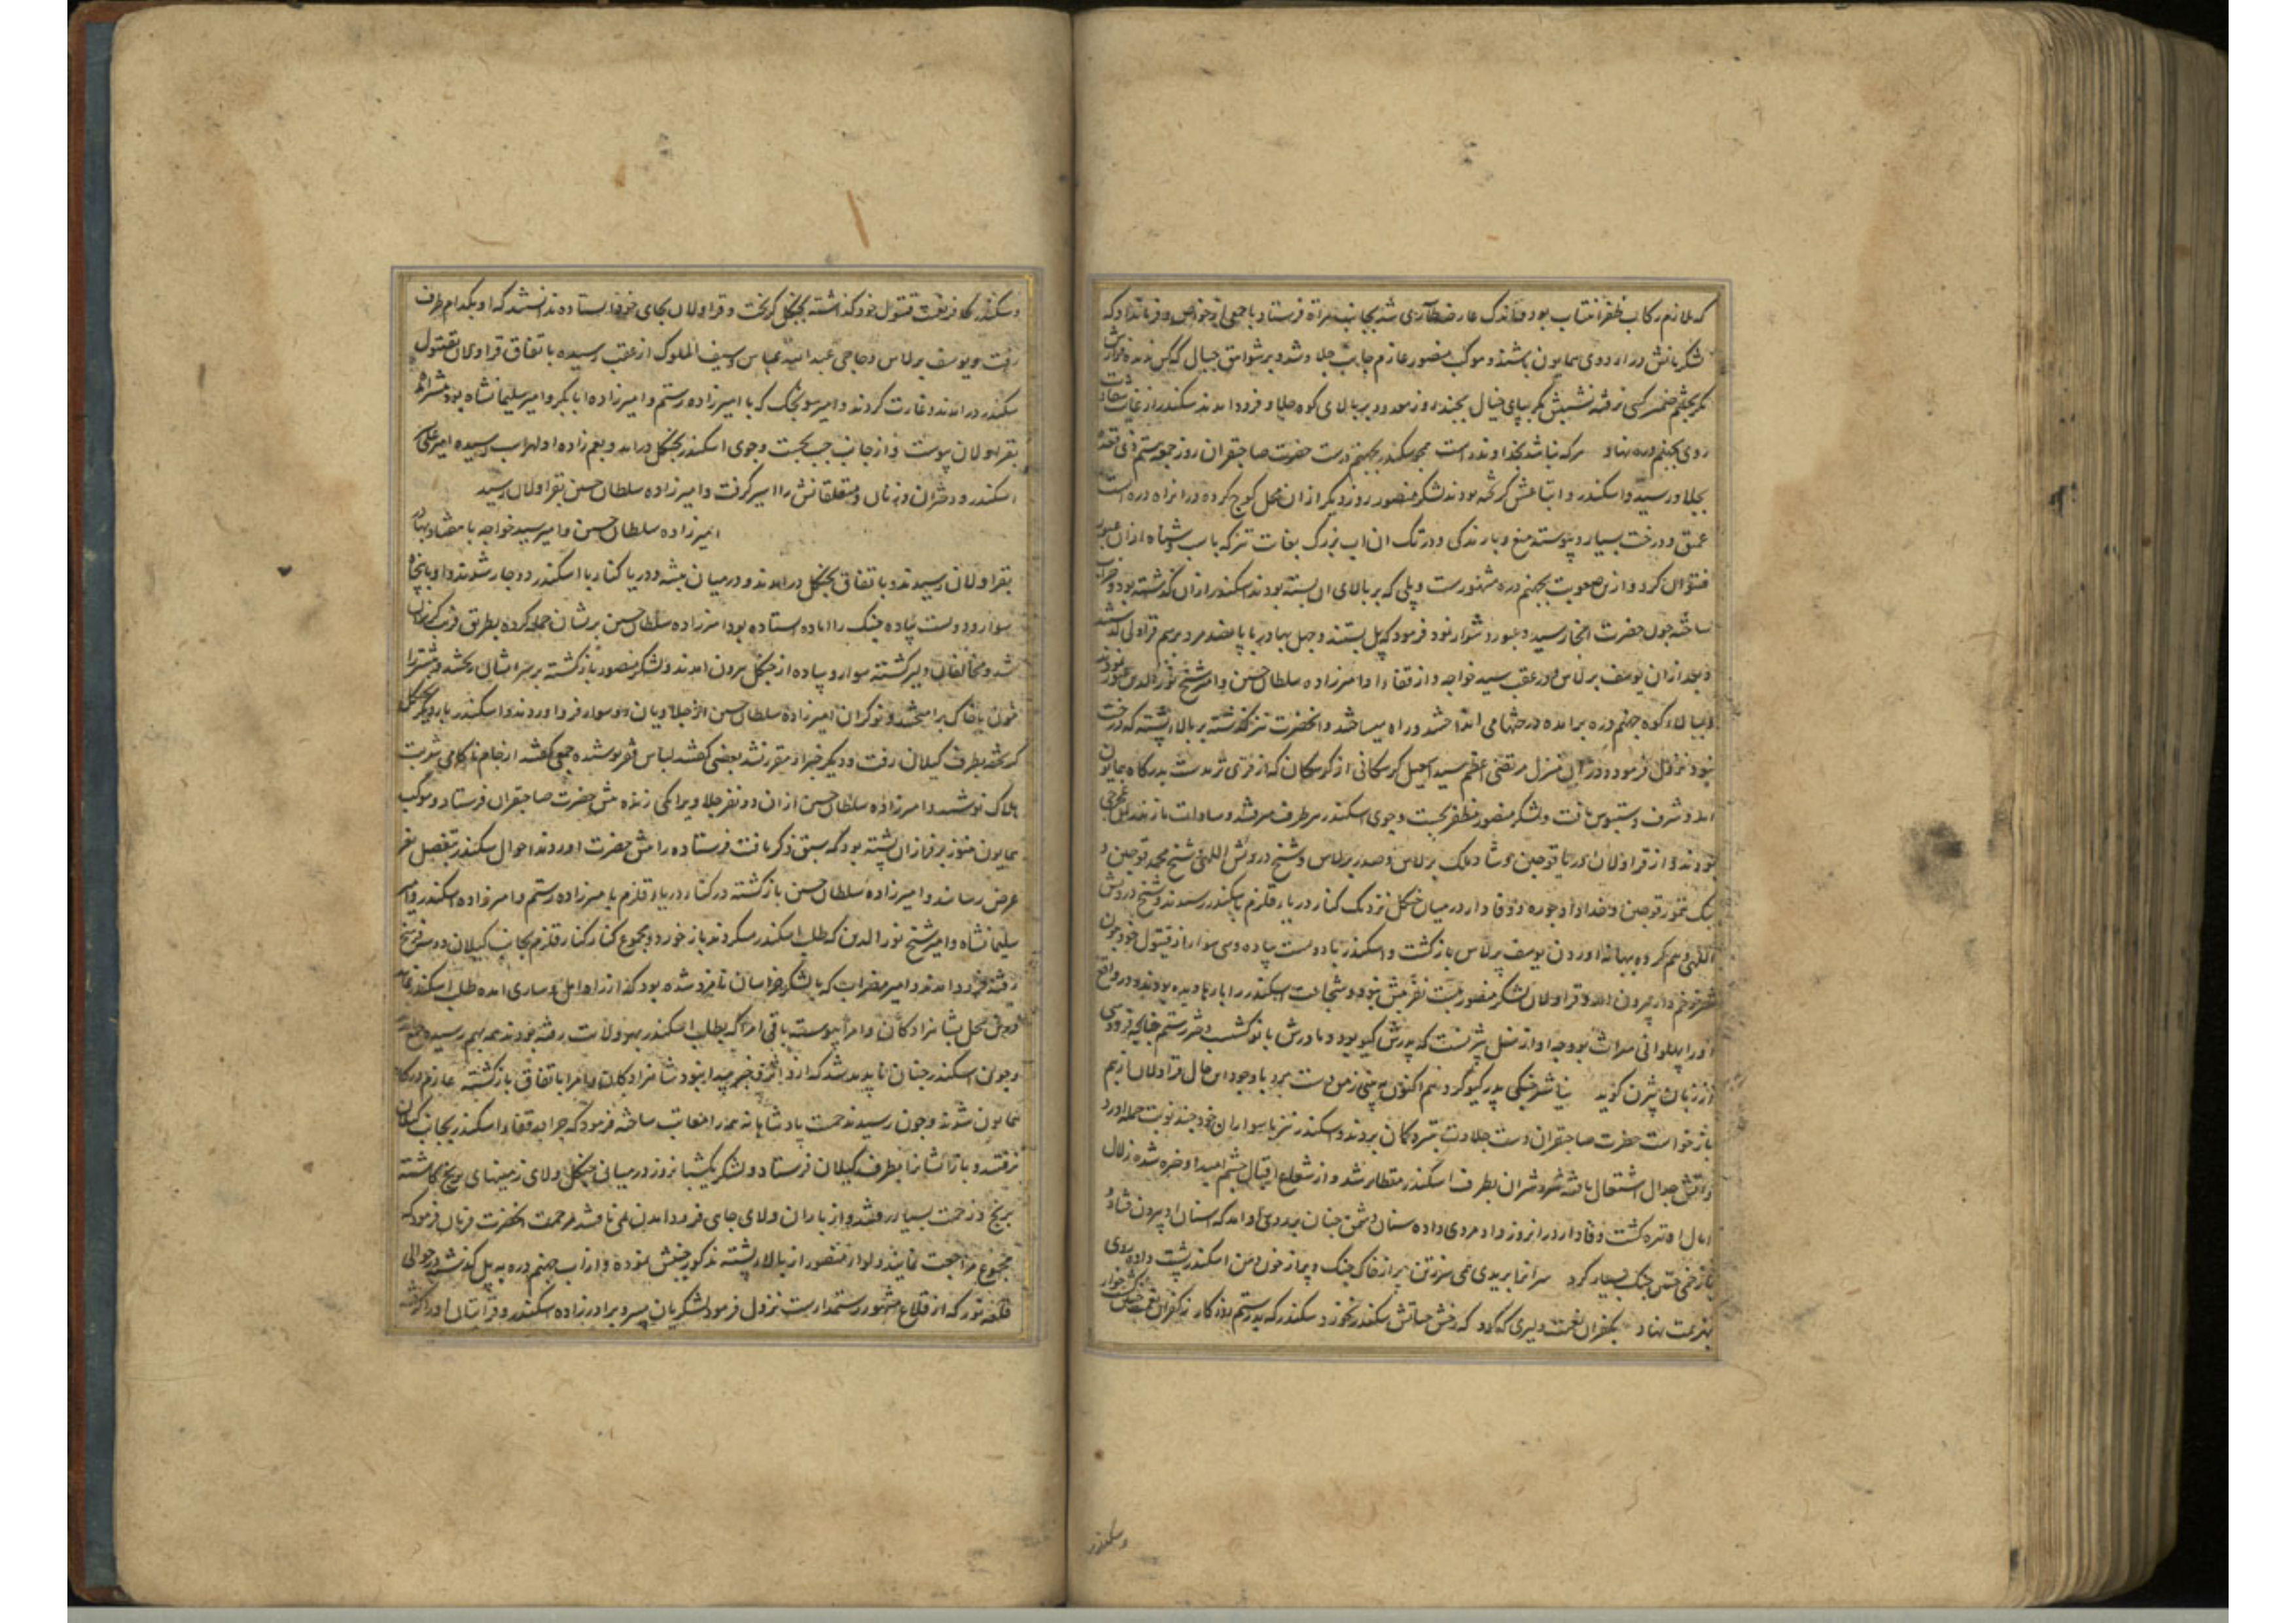 که ملازم رکاب ظفر انتساب بود عارضه شد بجانب هراة فرستاد با جمعی از خواص و فرمان داد که
لشکریانش در اردوی همایون باشند و موکب منصور عازم جانب جلاو شد و بر شواهق جبال که کس ندیده
مگر بچشم ضمیر کسی نرفته نشیبش مگر بپای خیال بچند روز بر بالای کوه جلاو فرود آمدند سکندر از غایت
روی بجهنم دره نهاد هر که نباشد بخداوند راست همچو سکندر بجهنم درست حضرت صاحبقران روز جمعه ذی قعده
بجلاور رسید و اسکندر و اتباعش گریخته بودند لشکر منصور روز دیگر از ان محل کوچ کرده در انراه دره است
عمیق و درخت بسیار و پیوسته میغ و بارندگی و در تک ان اب بزرگ بغایت تیز که باسب و شناه از ان عبور
نتوان کرد و از بس صعوبت بجهنم دره مشهورست و پلی که بر بالای ان بسته بودند اسکندر از ان گذشته بود و خراب
ساخته چون حضرت انجا رسید و عبور دشوار نمود فرمود که پل بستند و چهل بهادر با پانصد مرد برسم قراولی
و بعد از ان یوسف برلاس و در عقب سید خواجه و از قفاء او امیرزاده سلطان حسین و امیر شیخ نور الدین عبور نمودند
و ببالاء کوه جهنم دره برامده درختها می انداختند و راه میساختند و انحضرت نیز گذشته بر بالاء پشته که درخت
نبود نزول فرمود و در ان منزل مرتضی اعظم سید اسمعیل کرسکانی از کرسکان که از قری ترمدست بدرگاه همایون
امد و شرف دستبوس یافت و لشکر منصور مظفر بجست و جوی اسکندر هر طرف میرفتند و سادات مازندران
بودند و از قراولان دریا قوجین و شاد ملک برلاس و صدر برلاس و شیخ درویش اللهی شیخ محمد قوجین و
بیک تمور قوجین و خداداد جوره و وفادار در میان جنگل نزدیک کنار دریاء قلزم باسکندر رسیدند و شیخ درویش
اللهی وهم کرده بهانهٔ اوردن یوسف برلاس بازگشت و اسکندر با دویست پیاده و سی سوار از قیتول خود بیرون
بیرون امد و قراولان لشکر منصور بیست نفر بیش نبودند و شجاعت اسکندر را بارها دیده بودند و در واقع
او را پهلوانی میراث بود چه او از نسل بیژنست که پدرش گیو بود و مادرش بانو گشسب دختر رستم چنانچه فردوسی
از زبان بیژن گوید نیا شیر جنگی پدر گیو گرد هم اکنون ببینی ز من دست برد با وجود این حال قراولان از بیم
بازخواست حضرت صاحبقران دست جلادت بتیر و کمان بردند و اسکندر نیز با سواران خود چند نوبت حمله اورد
و اتش جدال اشتعال یافته شد و شیران بطرف اسکندر متقاطر شد و از شعاع اقبال چشم امید او خیره شده زلال
امال او تیره گشت وفادار در انروز داد مردی داده سنان دشمن چنان بر روی او امد که اسنان او بیرون فتاد و
با زخمی چنین جنگ بسیار کرد سرانرا بریدی همی سر ز تن پر از خاک جنگ و پر از خون دهن اسکندر پشت داده روی
بهزیمت نهاد بکفران نعمت دلیری که کرد که رخش حیاتش سکندر نخورد سکندر که بد رستم روزگار ز کفران نعمت چنین گشت خوار
و سکندر
و سکندر کافر نعمت قیتول خود گذاشته بجنگل گریخت و قراولان بجای خود ایستاده ندانستند که او بکدام طرف
رفت و یوسف برلاس و حاجی عبد الله عباس و سیف الملوک از عقب رسیده باتفاق قراولان بقیتول
سکندر درامدند و غارت کردند و امیر سونجک که با امیرزاده رستم و امیرزاده ابابکر و امیر سلیمانشاه بود
بقراولان پیوست و از جانب چپ بجست و جوی اسکندر بجنگل درامد و بعم زاده او لهراسب رسیده امیر علی
اسکندر و دختران و زنان و متعلقانش را اسیر گرفت و امیرزاده سلطان حسین بقراولان رسید
امیرزاده سلطان حسین و امیر سید خواجه با هفتاد بهادر
بقراولان رسیدند و باتفاق بجنگل درامدند و در میان بیشه و دریا کنار با اسکندر دوچار شدند و او با پنجاه
سوار و دویست پیاده جنگ را اماده استاده بود امیرزاده سلطان حسین بریشان حمله کرده بطریق فریب گریزان
شد و مخالفان دلیر گشته سوار و پیاده از جنگل بیرون امدند و لشکر منصور بازگشته بر سر ایشان تاختند و بیشتر را
خون با خاک برامیختند و نوکران امیرزاده سلطان حسین از جلاویان دو سوار فرود اوردند و اسکندر بار دیگر بجنگل
گریخته بطرف گیلان رفت و دیگر خبر او مقرر نشد بعضی گفتند لباس فقر پوشیده جمعی گفتند از جام ناکامی شربت
هلاک نوشید و امیرزاده سلطان حسین از ان دو نفر جلاوی را یکی زنده پیش حضرت صاحبقران فرستاد و موکب
همایون هنوز بر فراز ان پشته بود که سبق ذکر یافت فرستاده را پیش حضرت اوردند احوال سکندر بتفصیل
عرض رسانید و امیرزاده سلطان حسین بازگشته در کنار دریاء قلزم با میرزاده رستم و امیرزاده اسکندر و امیر
سلیمانشاه و امیر شیخ نور الدین که طلب اسکندر میکردند باز خورد و مجموع کنار کنار قلزم بجانب گیلان دو سه فرسخ
رفته فرود امدند و امیر مضراب که با لشکر خراسان نامزد شده بود که از راه امل و ساری امده طلب اسکندر نماید
درین محل بشاهزادگان و امرا پیوست باقی امرا که بطلب اسکندر بهر ولایت رفته بودند همه بهم رسیدند
و چون اسکندر چنان ناپدید شد که از و اثر و خبر پیدا نبود شاهزادگان و امرا باتفاق بازگشته عازم درگاه
همایون شدند و چون رسیدند حمیت پادشاهانه همه را معاتب ساخته فرمود که چرا بر قفاء اسکندر بجانب گیلان
نرفتند و باز ایشانرا بطرف گیلان فرستاد و لشکر یکشبانروز در میان جنگل ولای زمینهای برنج کاشته
برنج و زحمت بسیار رفتند و از باران ولای جای فرود امدن نمی یافتند مرحمت انحضرت فرمان فرمود که
مجموع مراجعت نمایند و لواء منصور از بالاء پشته مذکور جنبش نموده و از اب جهنم دره به پل گذشته در حوالی
قلعه نور که از قلاع مشهور رستمدارست نزول فرمود لشکریان پسر و برادرزاده اسکندر و قرابتان او را گرفته